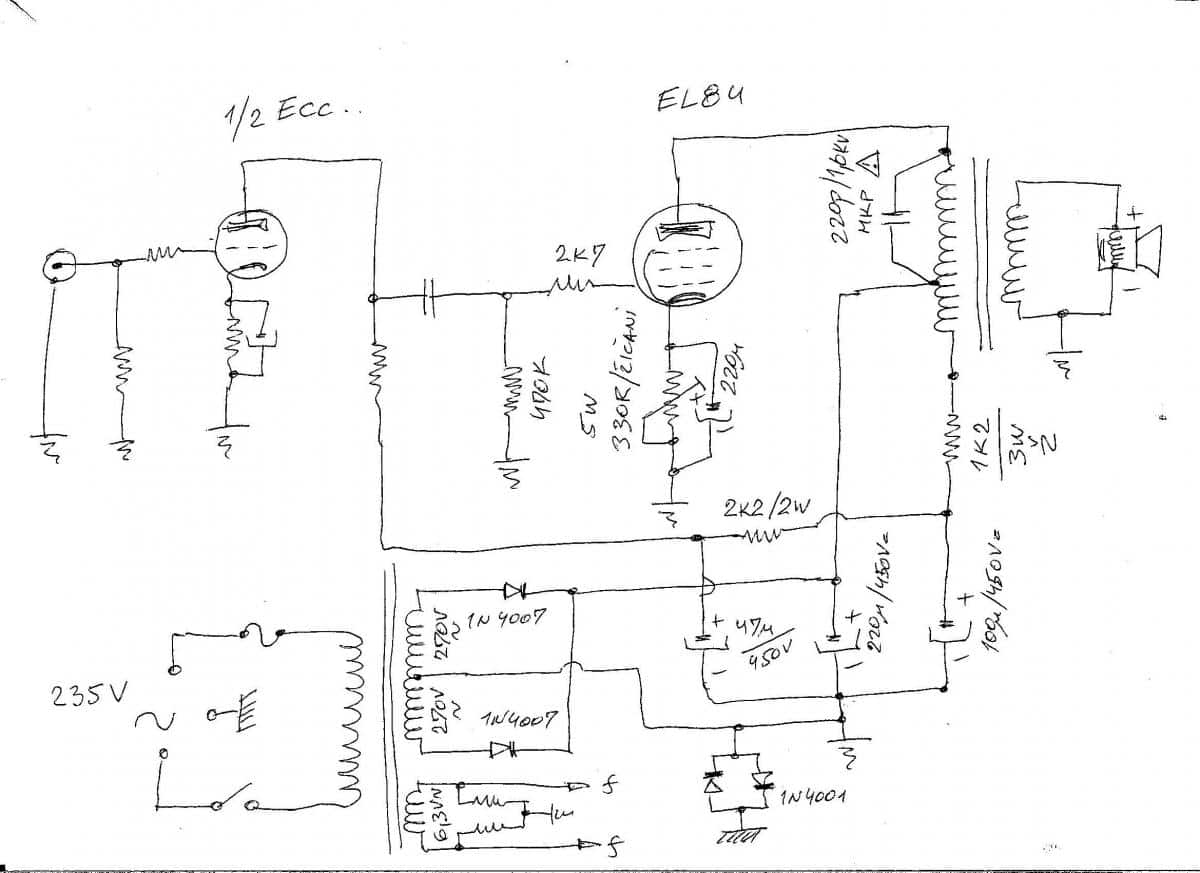 1/2 ECC..
EL84
220p/1,6KV
MKP
2K7
470K
5W
330R/žičani
220μ
+
-
+
-
1K2
3W
Ž
2K2/2W
1N4007
270V
~
270V
~
1N4007
+
47μ
450V
-
+
220μ/450V=
-
+
100μ/450V=
-
235V
~
6,3V~
f
f
1N4001